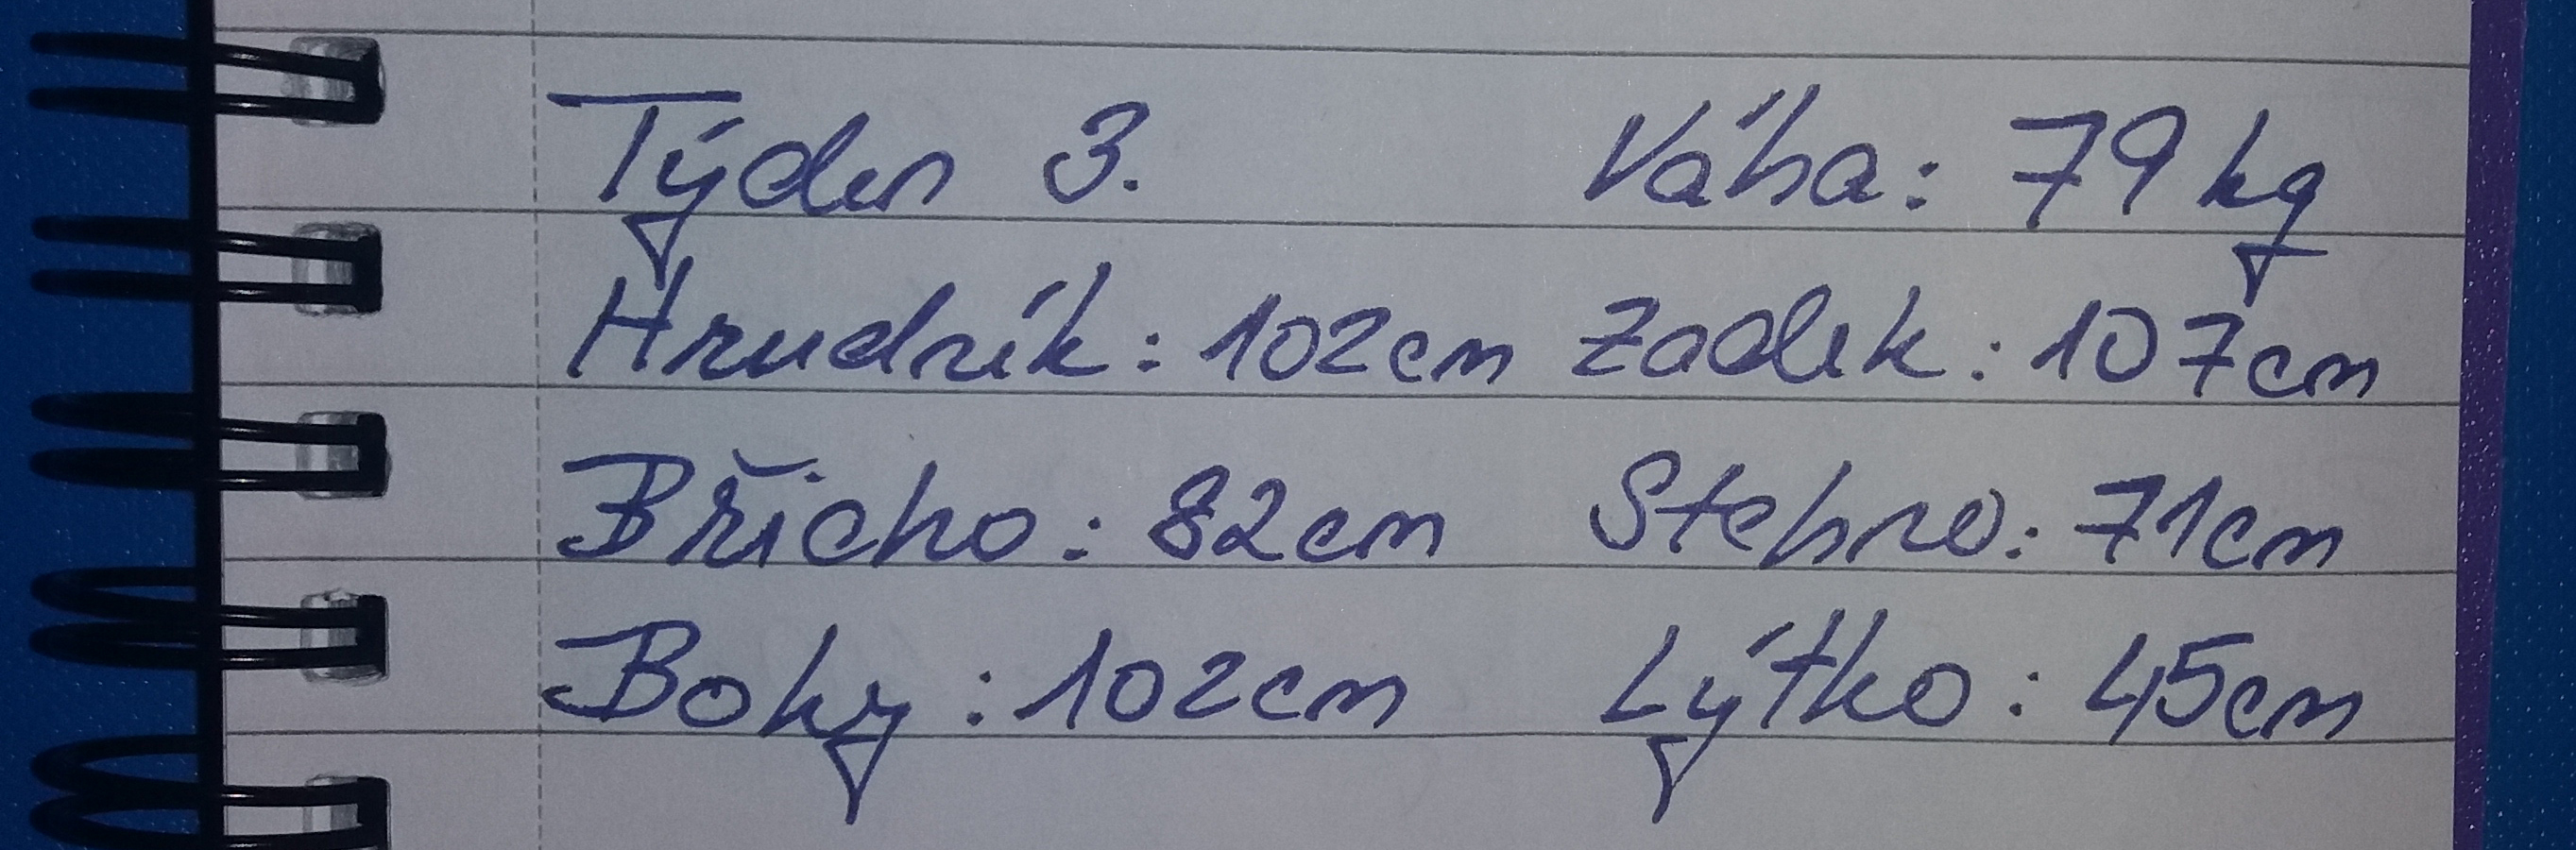 Týden 3. Váha: 79kg
Hrudník: 102cm Zadek: 107cm
Břicho: 82cm Stehno: 71cm
Boky: 102cm Lýtko: 45cm